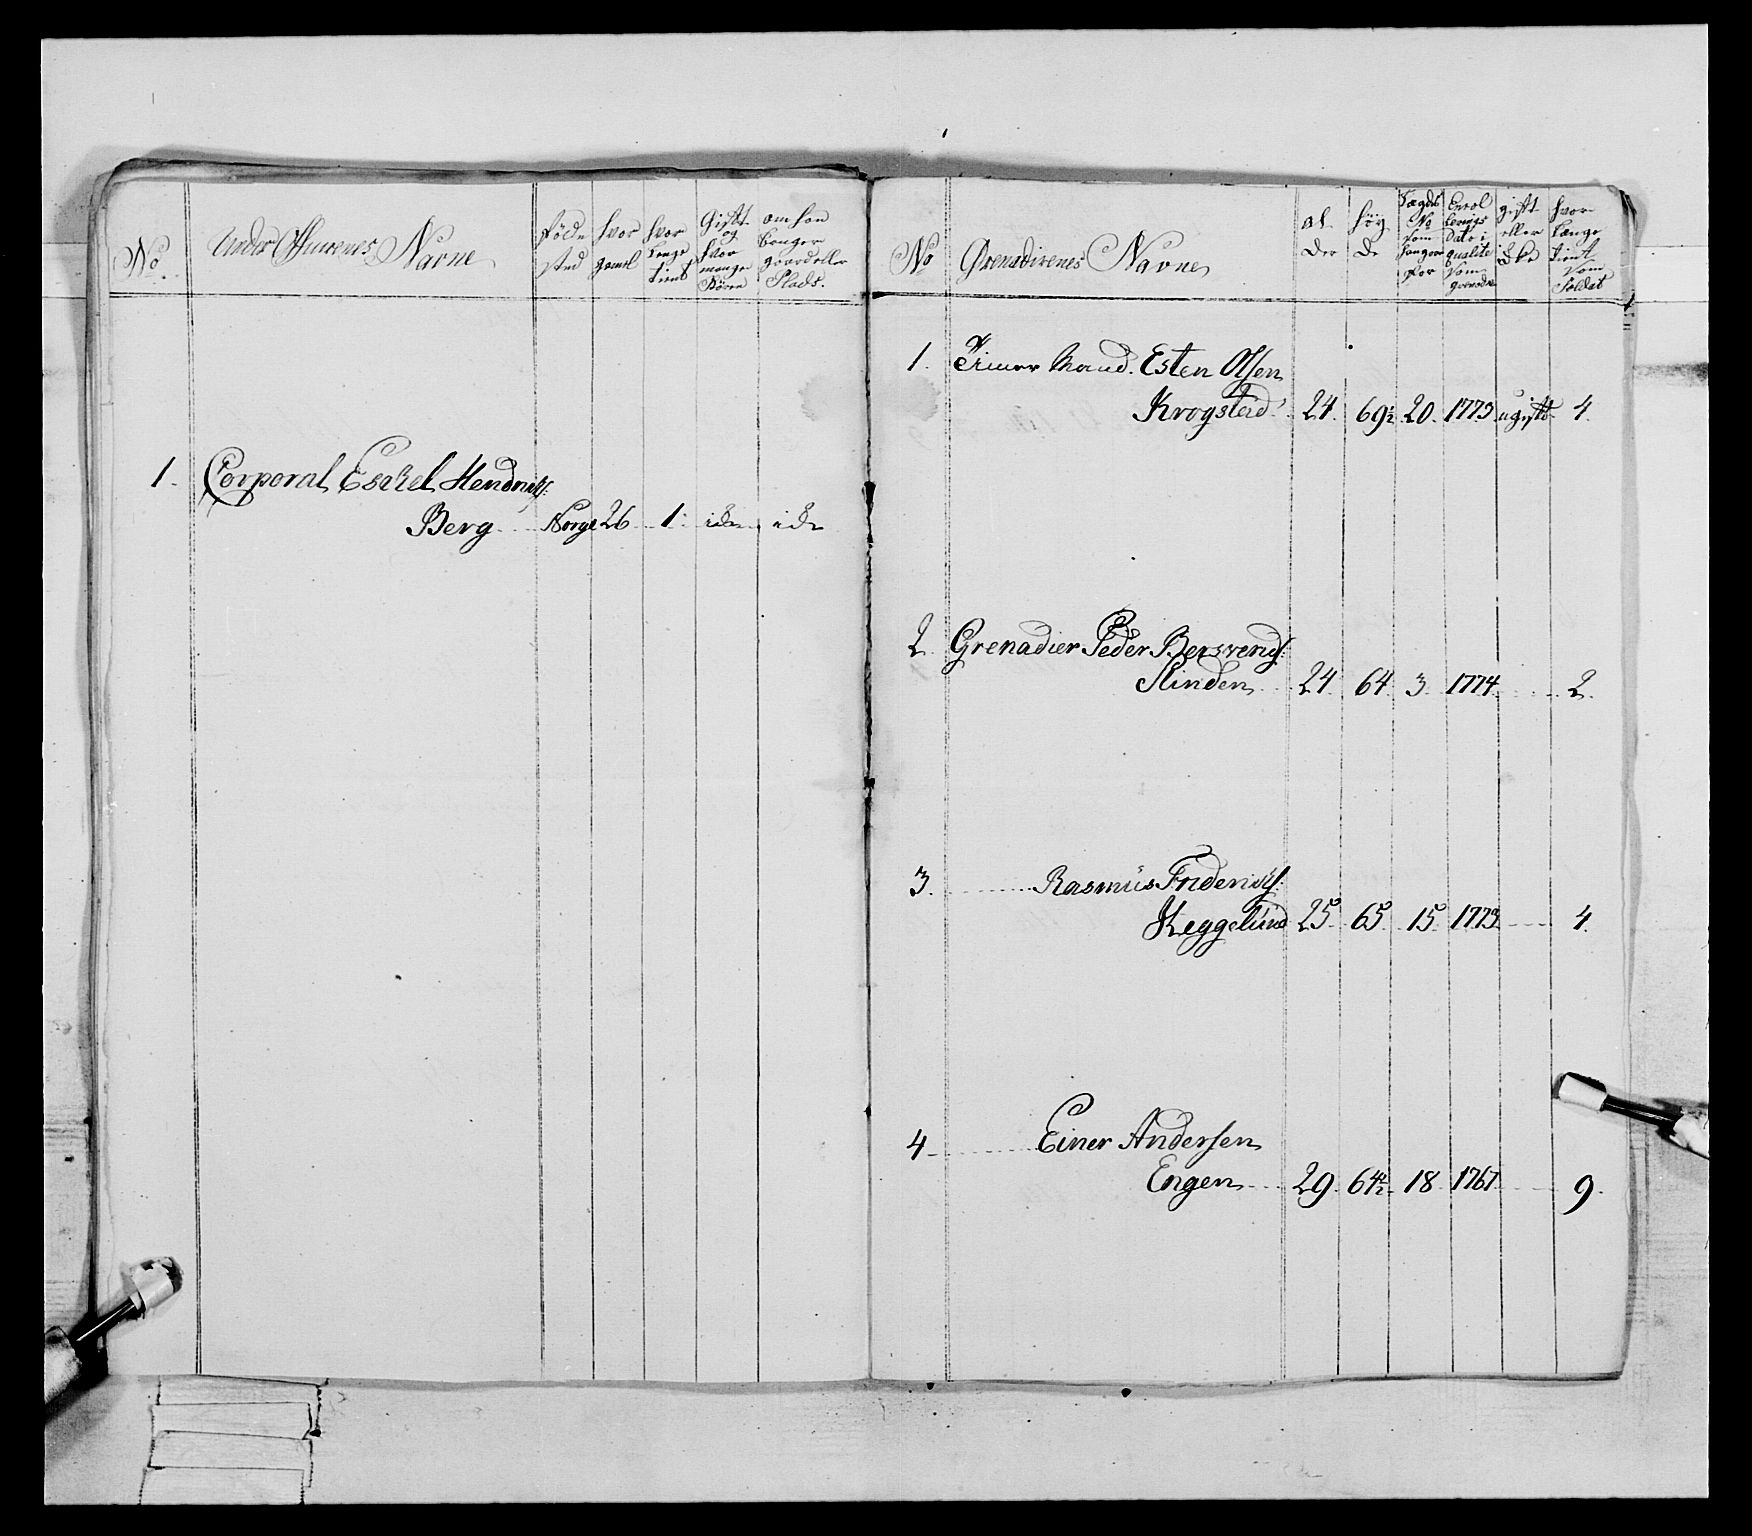 No.
Under Officerenes Navne
föde sted
hvor gamel
hvor lenge tient
Gift og hvor mange Börn
om han bruger gaard eller Plads.
1. Corporal Eskel Hendrichs:
Berg Norge 26 1. icke icke
No
Grenadirenes Navne
al der
høy de
Lægds No som hanger for
Enrol lerings Dato i qualite som grenader
gift eller icke
hvor længe tient som Soldat
1. Timer Mand. Esten Olsen
Krogstad 24. 69½ 20. 1773 ugift 4.
2 Grenadier Peder Bersvends:
Slinden 24 64 3 1774 2.
3. Rasmus Friderichs:
Keggelund 25 65 15 1773 4.
4 Einer Andersen
Engen 29 64½ 18 1767 9.